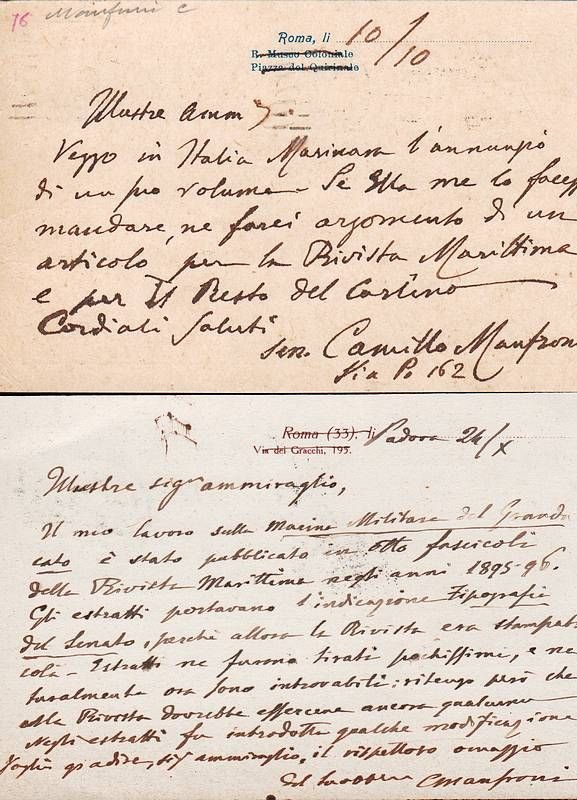 76 Manfroni C
Roma, li 10/10
R. Museo Coloniale
Piazza del Quirinale
Illustre Amm
Veggo in Italia Marinara l'annunzio
di un suo volume. Se Ella me lo facesse
mandare, ne farei argomento di un
articolo per la Rivista Marittima
e per Il Resto del Carlino
Cordiali saluti
sen. Camillo Manfroni
Via Po 162
Roma (33), li Padova 24/X
Via dei Gracchi, 195.
Illustre sigr ammiraglio,
Il mio lavoro sulla Marina Militare del Grandu
cato è stato pubblicato in otto fascicoli
della Rivista Marittima negli anni 1895-96.
Gli estratti portavano l'indicazione Tipografia
del Senato, perchè allora la Rivista era stampata
colà. Estratti ne furono tirati pochissimi, e na
turalmente ora sono introvabili: ritengo però che
alla Rivista dovrebbe essercene ancora qualcuno
Negli estratti fu introdotta qualche modificazione
Voglia gradire, sigr ammiraglio, il rispettoso omaggio
del suo CManfroni